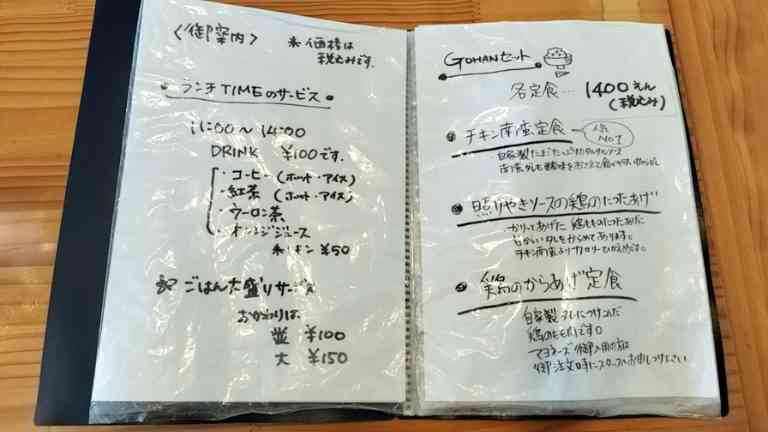 〈御案内〉
※価格は
税込みです。
・ランチTIMEのサービス・
11:00～14:00
DRINK ¥100です.
・コーヒー(ホット・アイス)
・紅茶(ホット・アイス)
・ウーロン茶
・オレンジジュース
※キン ¥50
ごはん大盛りサービス
おかわりは
並 ¥100
大 ¥150
GOHANセット
各定食…1400えん
(税込み)
チキン南蛮定食
人気
No1
・自家製たまごたっぷりのタルタルソース
照りやきソースの鶏のたつたあげ
かりっとあげた 鶏もものたつたあげ
甘からいタレをからめてあります。
チキン南蛮よりカロリーひかえめです。
鶏のからあげ定食
自家製タレにつけこんだ
鶏のもも肉です。
マヨネーズ御入用の方は
御注文時にスタッフにお申しつけ下さい